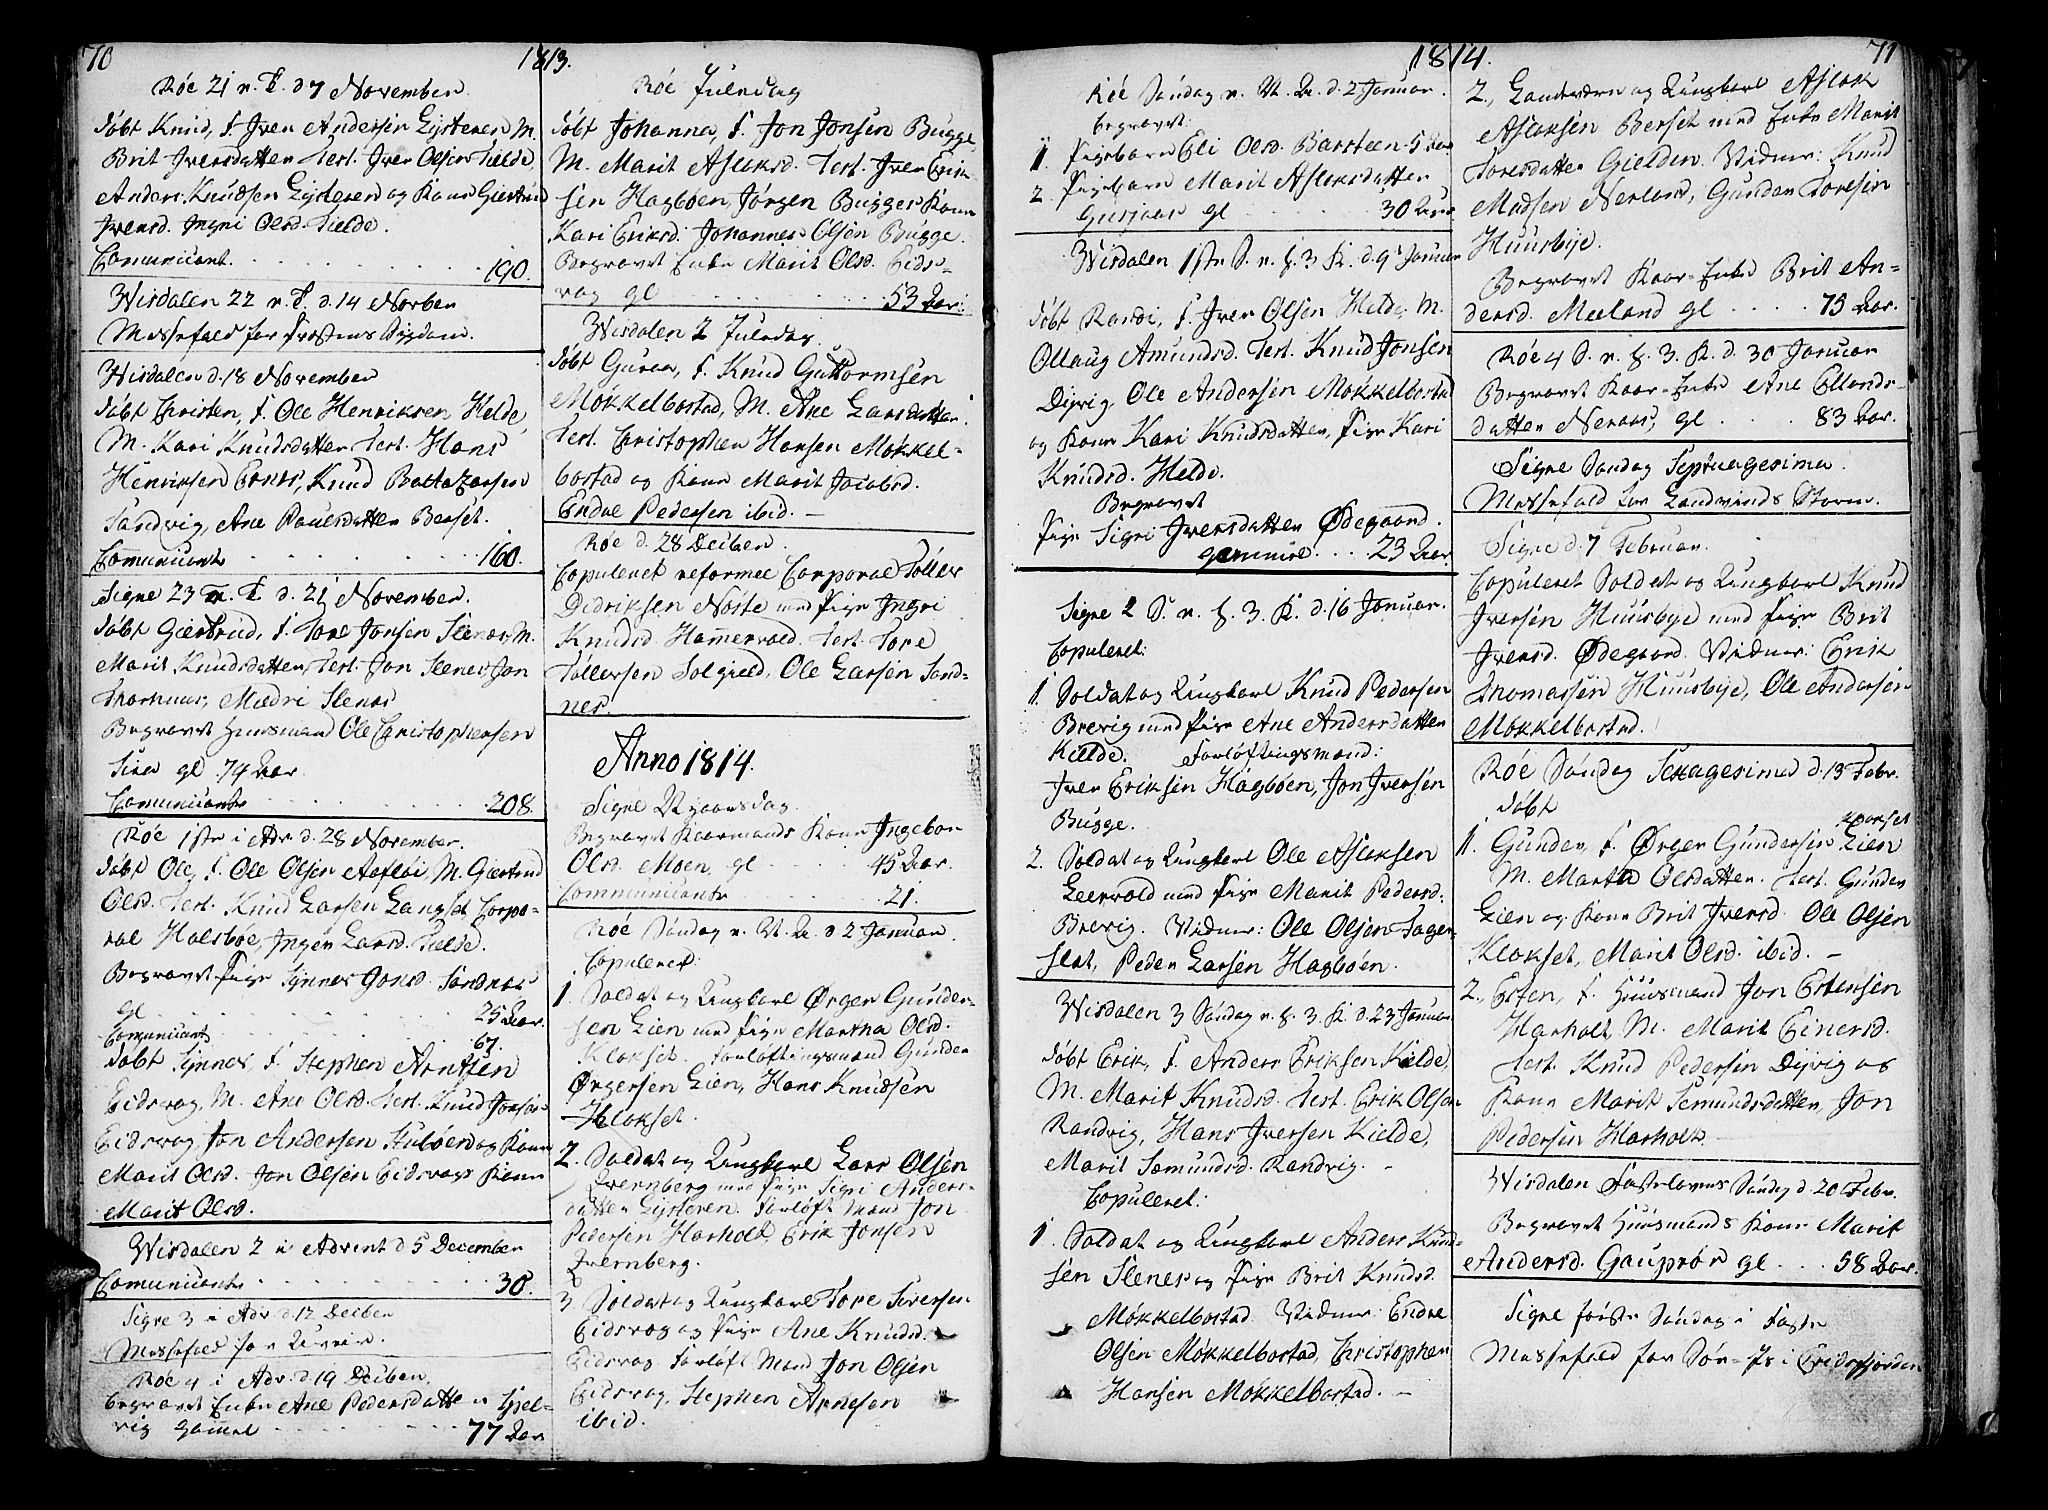 70
1813.
Røe 21 n. T. d 7 November.
Døbt Knud, F. Iver Andersen Eÿsteren M.
Brit Iversdatten Test. Iver Olsen Tielde,
Anders Knudsen Eÿsteren og Kone Giertrud
Iversd. Ingri Olsd. Tielde.
Comunicant. 190.
Wisdalen 22 n. T. d. 14 Novben
Messefald for Præstens Sÿgdom.
Wisdalen d. 18 November
Døbt Christen, F. Ole Henriksen Helde
M. Kari Knudsdatten Test. Hans
Henriksen, Knud Baltazersen
Sandvig, Ane Pouelsdatten Berset.
Comunicant 160.
Signe 23 n. T. d. 21 November.
Døbt Giertrud, F. Tore Jonsen Slenes M.
Marit Knudsdatten, Test. Jon Slenes, Jon
Slenes
Begravet Huusmand Ole Christophersen
Sira gl 74 Aar
Comunicante 208.
Røe 1ste i Adv d. 28 November.
Døbt Ole, F. Ole Olsen Aafløi, M. Giertrud
Olsd. Test. Knud Larsen Langset, Corpo-
ral Halsbøe, Inger Larsd. Tielde.
Begravet Pige Synnev Jonsd. Sandnes
gl 25 Aar.
Comunicant 67.
Døbt Synnev F. Stephen Arntsen
Eidsvog, M. Ane Olsd. Test. Knud Jonsen
Eidsvog, Jon Andersen Stubøen og Kone
Marit Olsd. Jon Olsen Eidsvogs Kone
Marit Olsd.
Wisdalen 2 i Advent d 5 December
Comunicante 30.
Signe 3 i Adv d. 12 Deiben
Messefald for Uveir.
Røe 4 i Adv. d. 19 Deiben,
begravet Enke Ane Pedersdatten Gjel-
vig gammel 77 Aar
Røe Juledag
Døbt Johanna, F. Jon Jonsen Bugge
M. Marit Aslaksd. Test. Iver Erik-
sen Hagbøen, Jørgen Bugges Kone
Kari Eriksd. Johannes Olsen Bugge.
Begravet Enke Marit Olsd. Eids-
vog gl 53 Aar.
Wisdalen 2 Juledag
Døbt Guraa, F. Knud Guttormsen
Møkkelbostad, M. Ane Larsdatter.
Test. Christopher Hansen Møkkel-
bostad og Kone Marit Jacobsd.
Endre Pedersen ibid. —
Røe d. 28 Deiben.
Copuleret reformee Corporal Tøller
Didriksen Nøste med Pige Ingri
Knudsd. Hammervold. Test. Tore
Tøllersen Solgield, Ole Larsen Sand-
nes.
Anno 1814.
Signe Nÿaarsdag
Begravet Kaarmands Kone Ingebor
Olsd. Moen, gl 45 Aar.
Communicante 21.
Røe Søndag n. N. A. d 2 Januar.
Copuleret:
1. Soldat og Ungkarl Ørgen Gunder-
sen Lien med Pige Martha Olsd.
Klokset. Forløftningsmænd Gunder
Ørgersen Lien, Hans Knudsen
Klokset.
2. Soldat og Ungkarl Lars Olsen
Tvernberg med Pige Sigri Anders-
datter Eÿsteren. Forløft mænd Jon
Pedersen Harholt, Erik Jonsen
Tvernberg.
3 Soldat og Ungkarl Tore Sivertsen
Eidsvog og Pige Ane Knudsd.
Eidsvog Forløft Mænd Jon Olsen
Eidsvog, Stephen Arnesen
ibid.
1814.
71
Røe Søndag n. N. A. d. 2 Januar.
begravet:
1. Pigebarn Eli Olsd. Barsteen 5 Aar
2. Pigebarn Marit Aslaksdatter
Gusjaas gl 30 Uger
Wisdalen 1ste S. n. H. 3 K. d. 9 Januar
Døbt Randi, F. Iver Olsen Helde, M.
Ollaug Amundsd. Test. Knud Jonsen
Digvig, Ole Andersen Møkkelbostad
og Kone Kari Knudsdatter, Pige Kari
Knudsd. Helde.
Begravet
Pige Sigri Iversdatter Ødegaard.
gammel 23 Aar
Signe 2 S. n. H. 3 K. d. 16 Januar.
Copuleret:
1. Soldat og Ungkarl Knud Pedersen
Brevig med Pige Ane Andersdatter
Kielde. Forløftningsmænd:
Iver Eriksen Hagbøen, Jon Iversen
Bugge.
2. Soldat og Ungkarl Ole Aslaksen
Leervold med Pige Marit Pedersd.
Brevig. Vidner: Ole Olsen Tager-
slet, Peder Larsen Hagbøen.
Wisdalen 3 Søndag n. H. 3 K. d. 23 Januar
Døbt Erik, F. Anders Eriksen Kielde,
M. Marit Knudsd. Test. Erik Olsen
Randvig, Hans Iversen Kielde,
Marit Somundsd. Randvig. —
Copuleret:
1. Soldat og Ungkarl Anders Knud-
sen Slenes og Pige Brit Knudsd.
Møkkelbostad Vidner: Endre
Olsen Møkkelbostad, Christopher
Hansen Møkkelbostad. —
2., Landværn og Ungkarl Aslak
Aslaksen Berset med Enke Marit
Toresdatter Gielden. Vidner: Knud
Madsen Nerland, Gunder Toresen
Huusbye.
Begravet Kaar-Enke Brit An-
dersd. Meeland gl 75 Aar.
Røe 4 S. n. H. 3. K. d. 30 Januar
Begravet Kaar-Enke Ane Ellends-
datter Neraas, gl 83 Aar.
Signe Søndag Septuagesima.
Messefald for Landvinds Storm.
Signe d. 7 Februar.
Copuleret Soldat og Ungkarl Knud
Iversen Huusbye med Pige Brit
Iversd. Ødegaard. Vidner: Erik
Thomassen Huusbye, Ole Andersen
Møkkelbostad.
Røe Søndag Sexagesima d. 13 Febr.
Døbt
1. Gunder, F. Ørger Gundersen Lien
M. Martha Olsdatter. Test. Gunder
Lien og Kone Brit Iversd. Ole Olsen
Klokset, Marit Olsd. ibid. —
2., Esten, F. Huusmand Jon Estensen
Harholt, M. Marit Einersd.
Test. Knud Pedersen Digvig og
Kone Marit Semundsdatter, Jon
Pedersen Harholt.
Wisdalen Fastelavens Søndag d. 20 Febr.
Begravet Huusmands Kone Marit
Andersd. Gauprør gl 58 Aar.
Signe første Søndag i Faste
Messefald for Søe-Is i Eridsfjorden